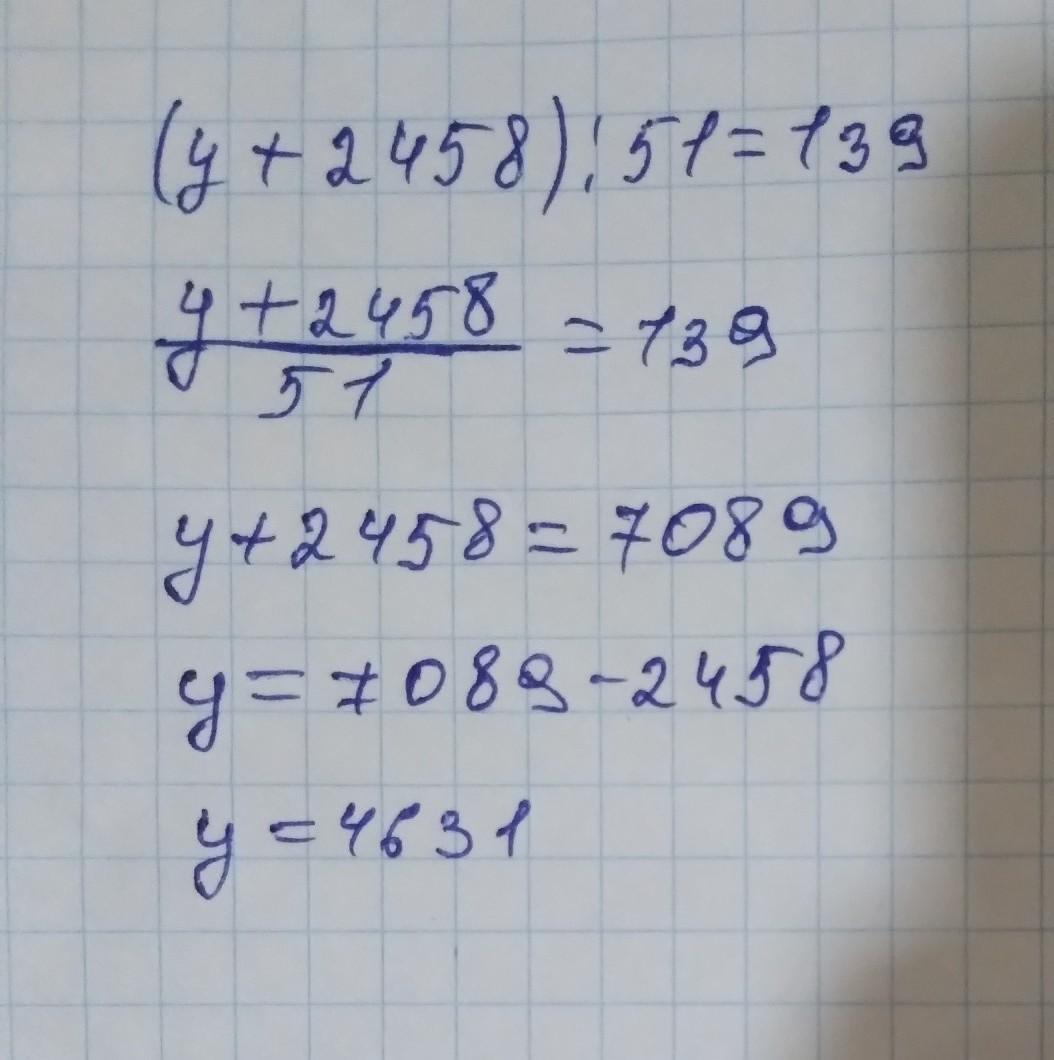 (y + 2458) : 51 = 139
y + 2458 / 51 = 139
y + 2458 = 7089
y = 7089 - 2458
y = 4631